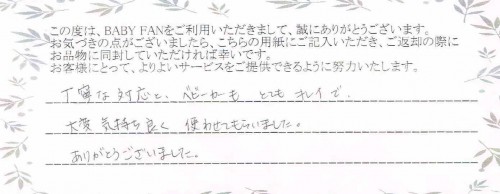 この度は、BABY FANをご利用いただきまして、誠にありがとうございます。
お気づきの点がございましたら、こちらの用紙にご記入いただき、ご返却の際に
お品物に同封していただければ幸いです。
お客様にとって、よりよいサービスをご提供できるように努力いたします。
丁寧な対応と、ベビーカーも とてもキレイで、
大変 気持ち良く 使わせてもらいました。
ありがとうございました。